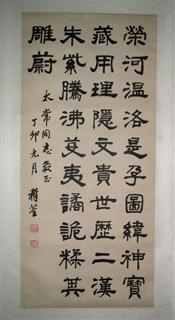 榮河溫洛是孕圖緯神寶
藏用理隱文貴世歷二漢
朱紫騰沸芟夷譎詭糅其
雕蔚
太常同志教正
丁卯九月